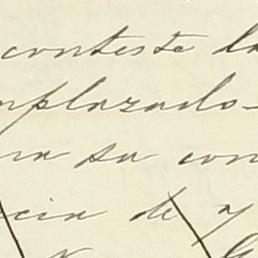 conteste la
mplazado-
ra su con
cia de y